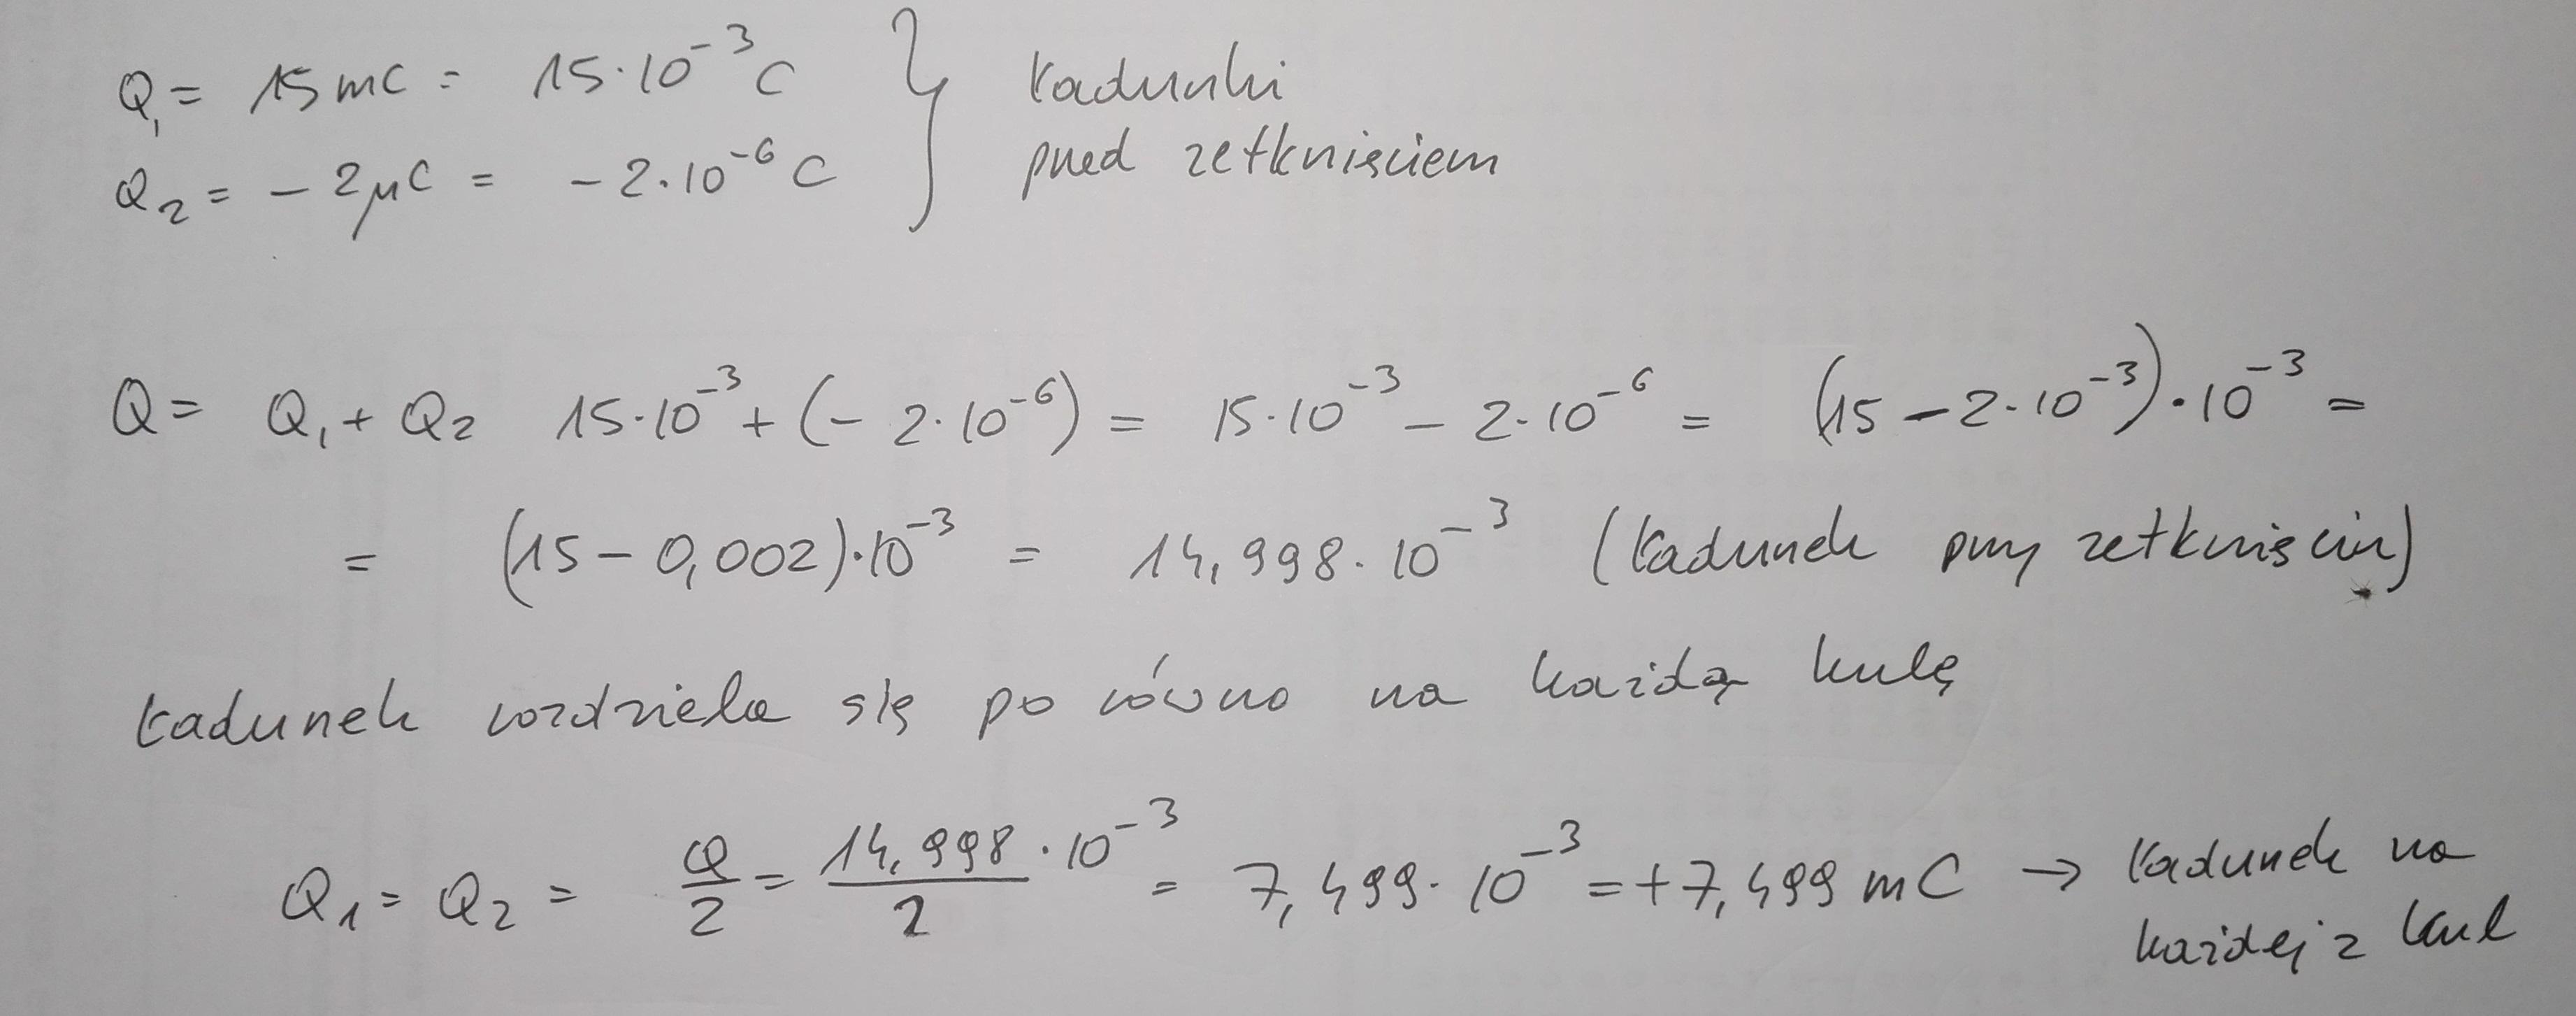 Q₁ = 15 mC = 15·10⁻³ C } ładunki
Q₂ = – 2μC = – 2·10⁻⁶ C przed zetknięciem
Q = Q₁ + Q₂ 15·10⁻³ + (– 2·10⁻⁶) = 15·10⁻³ – 2·10⁻⁶ = (15 – 2·10⁻³)·10⁻³ =
= (15 – 0,002)·10⁻³ = 14,998·10⁻³ (ładunek przy zetknięciu)
ładunek rozdziela się po równo na każdą kulę
Q₁ = Q₂ = Q/2 = 14,998·10⁻³/2 = 7,499·10⁻³ = +7,499 mC → ładunek na
każdej z kul